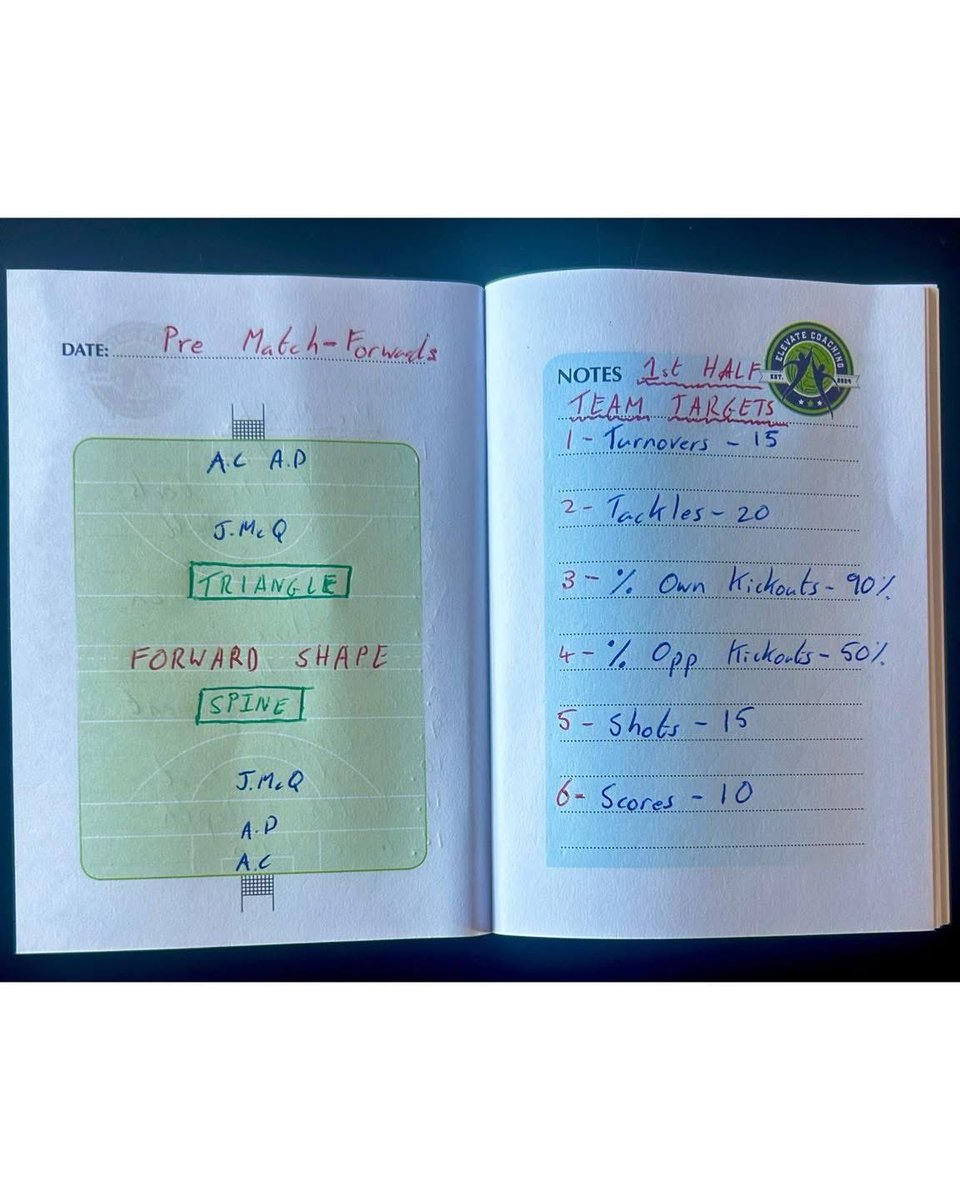 DATE: Pre Match-Forwards
A.C A.D
J.McQ
TRIANGLE
FORWARD SHAPE
SPINE
J.McQ
A.D
A.C
ELEVATE COACHING
EST. 2024
NOTES 1st HALF
TEAM TARGETS
1- Turnovers - 15
2- Tackles - 20
3- % Own Kickouts - 90%
4- % Opp Kickouts - 50%
5- Shots - 15
6- Scores - 10